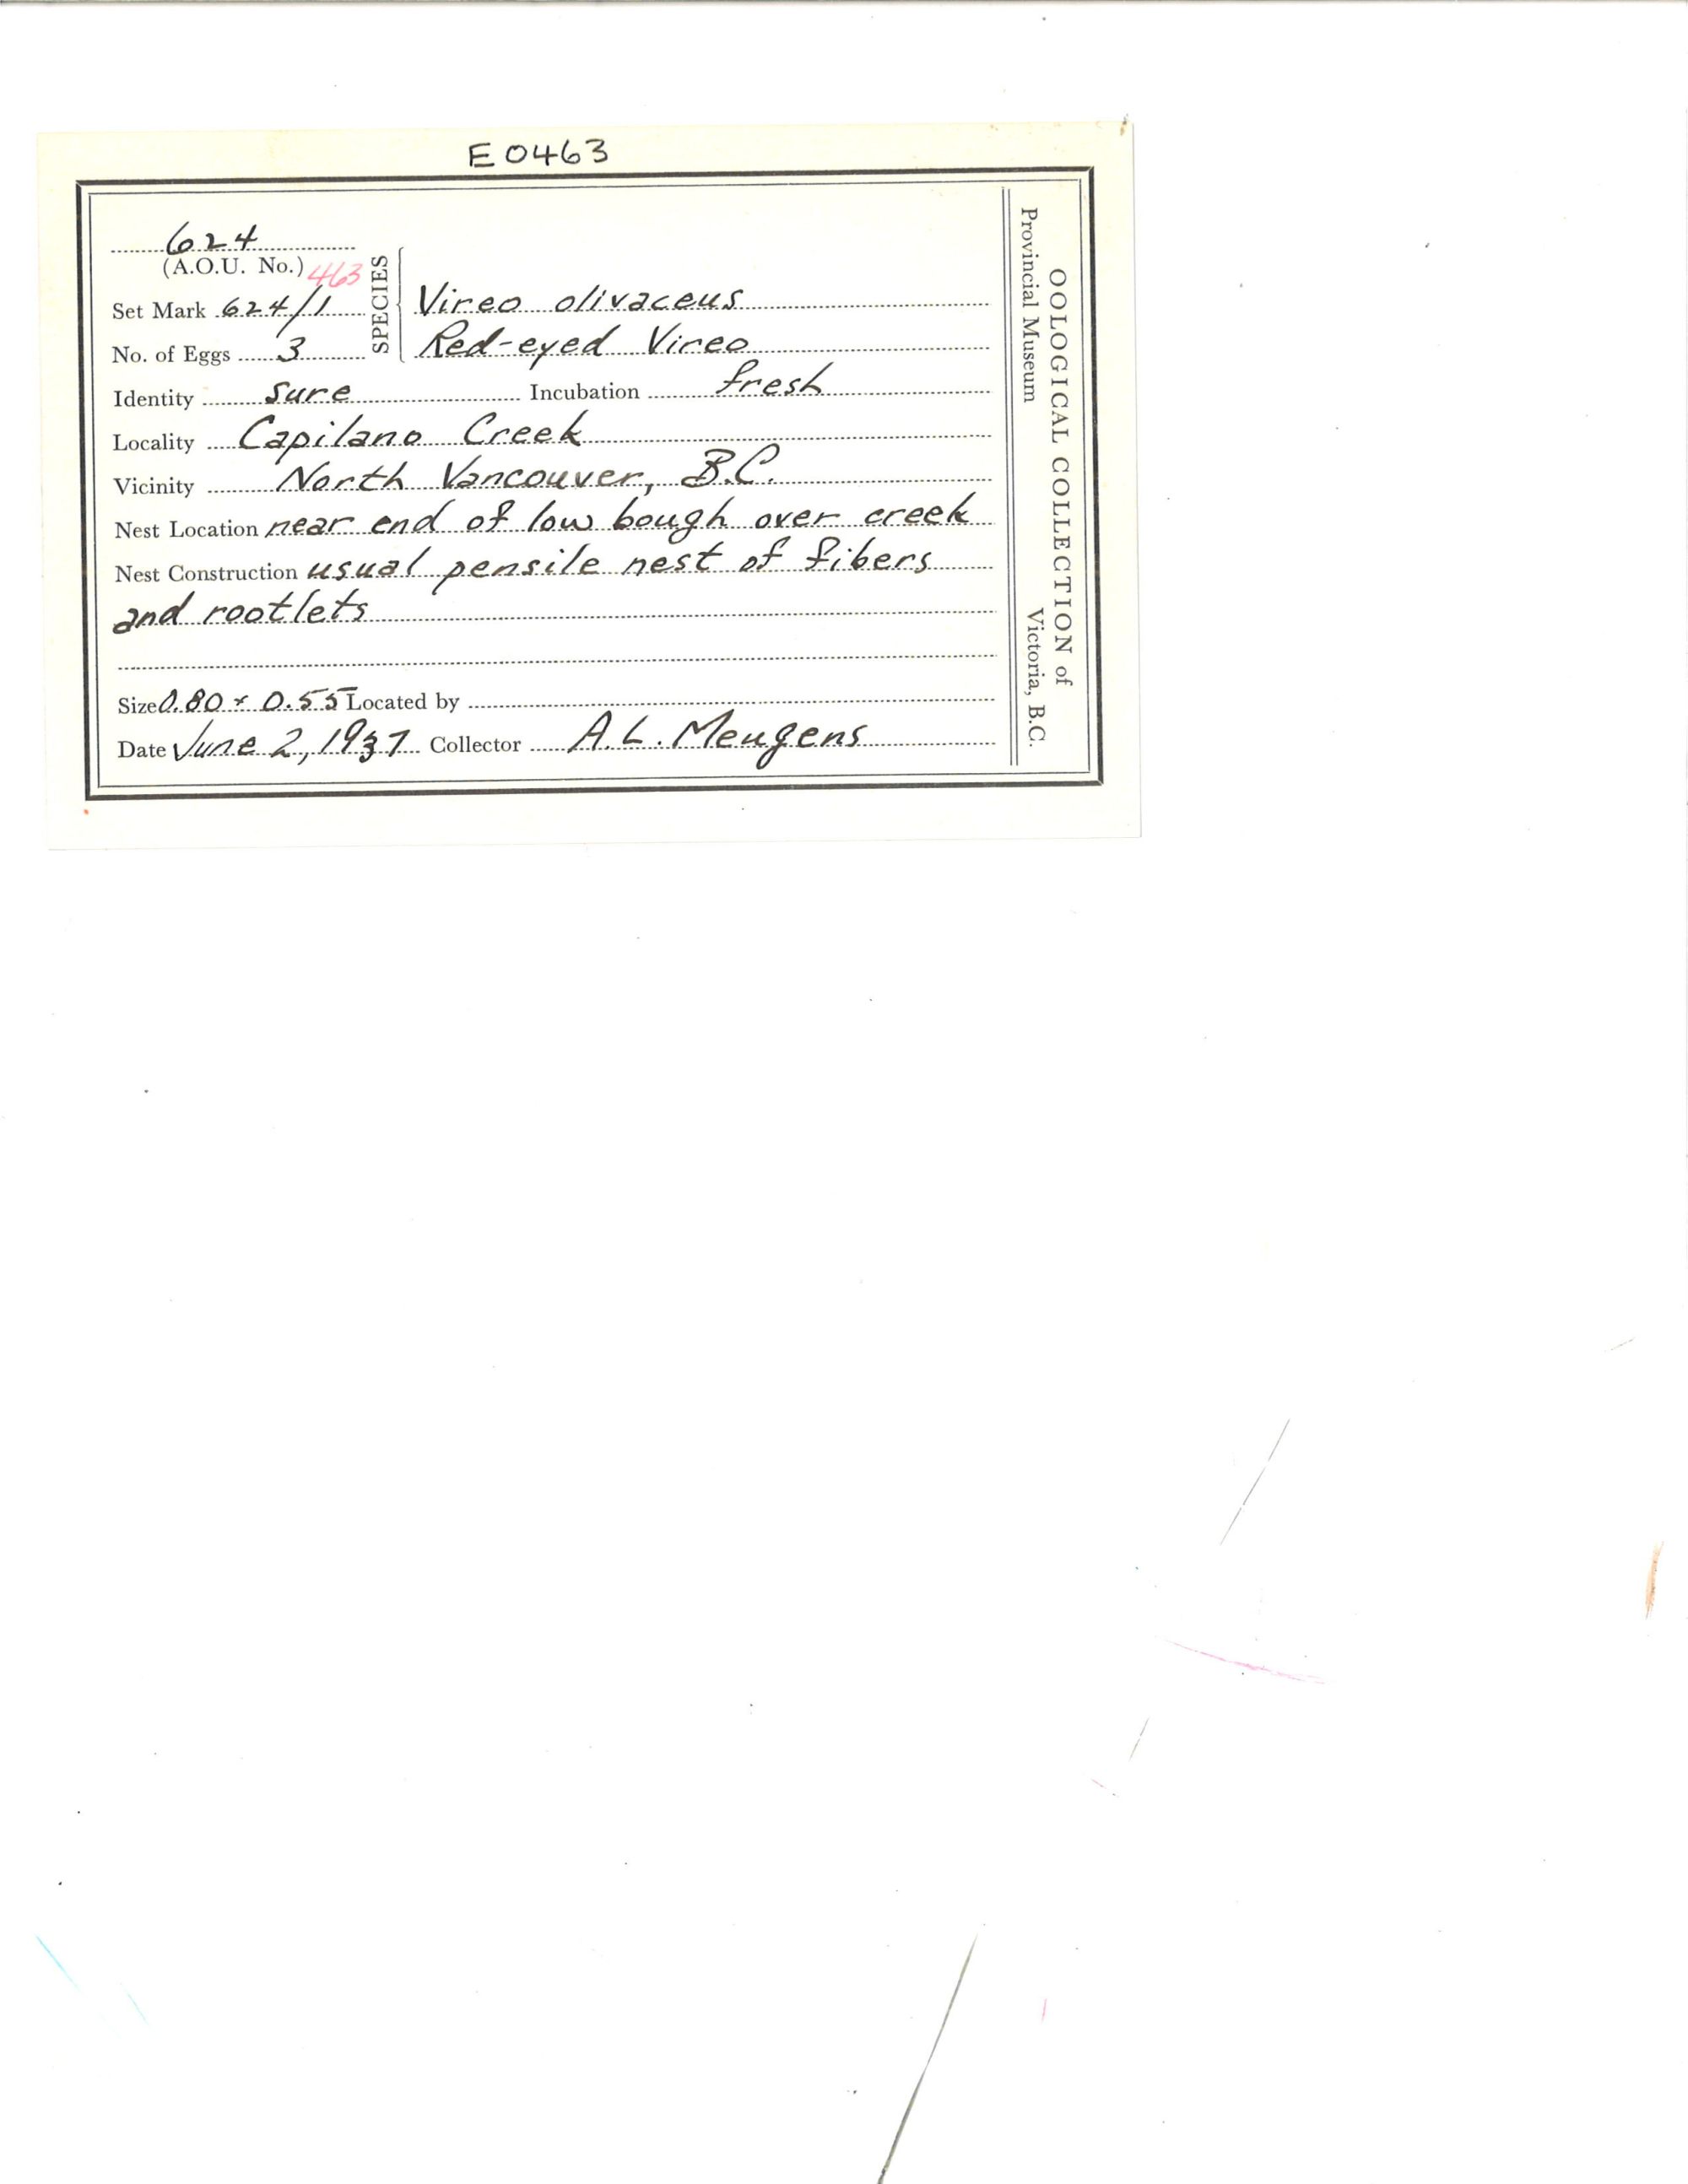 E0463
624
(A.O.U. No.) 463
Set Mark 624/1
No. of Eggs 3
SPECIES
Vireo olivaceus
Red-eyed Vireo
Identity sure Incubation fresh
Locality Capilano Creek
Vicinity North Vancouver, B.C.
Nest Location near end of low bough over creek
Nest Construction usual pensile nest of fibers
and rootlets
Size 0.80 x 0.55 Located by
Date June 2, 1937 Collector A.L. Meugens
OOLOGICAL COLLECTION of
Provincial Museum Victoria, B.C.